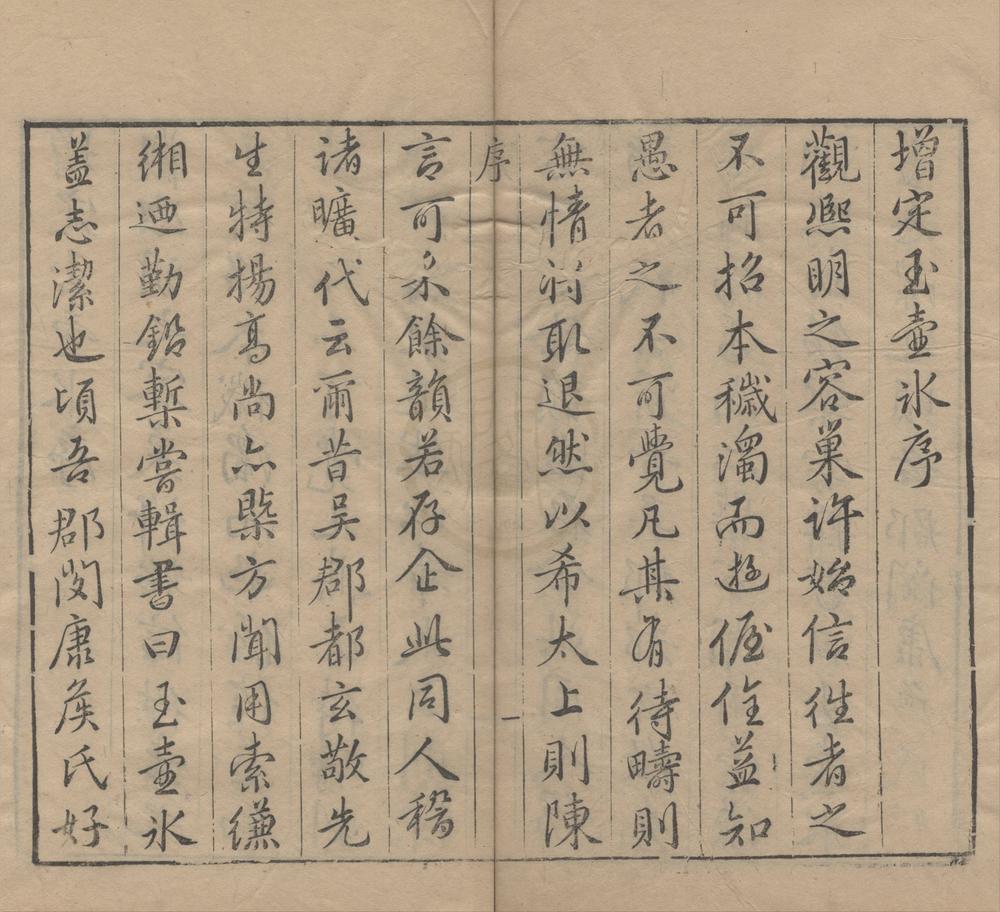 增定玉壺冰序
觀熈明之容巢許始信徃者之
不可招本穢濁而遊偓佺益知
愚者之不可覺凡其有待疇則
無情利取退然以希太上則陳
序
一
言可永餘韻若存企此同人稽
諸曠代云爾昔吴郡都玄敬先
生特揚高尚亦槩方聞用索縑
緗迺勤鉛槧嘗輯書曰玉壺冰
葢志潔也頃吾郡閔康侯氏好